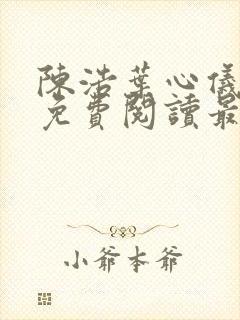 陳浩葉心儀
免費閱讀最
小爺本爺